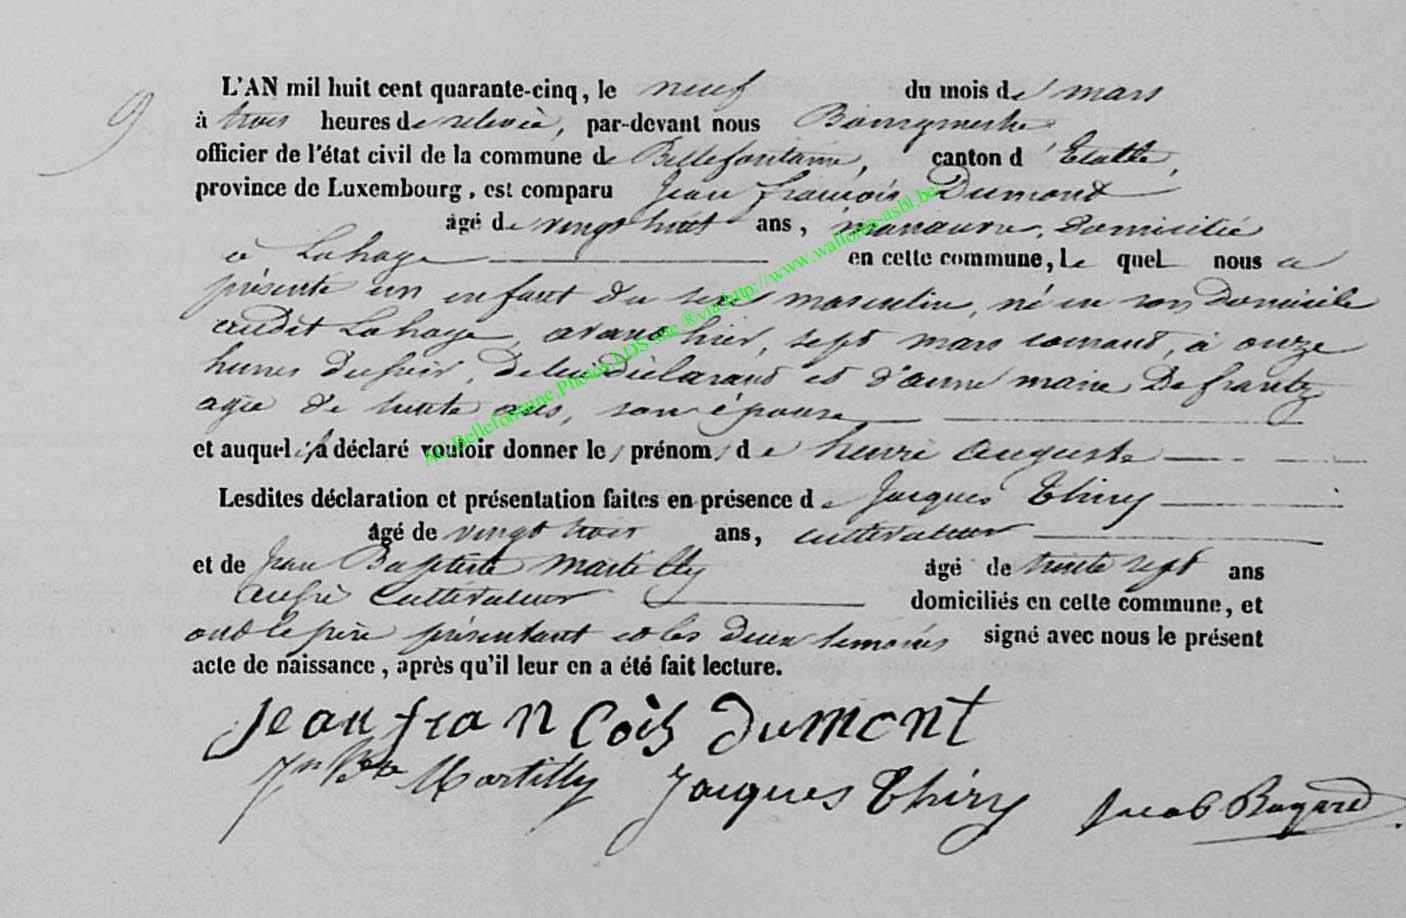 9
L'AN mil huit cent quarante-cinq, le neuf du mois de mars
à trois heures de relevée, par-devant nous Bourgmestre
officier de l'état civil de la commune de Bellefontaine, canton d'Etalle,
province de Luxembourg, est comparu Jean françois Dumont
âgé de vingt huit ans, manœuvre, domicilié
à Lahage en cette commune, le quel nous a
présenté un enfant du sexe masculin, né en son domicile
audit Lahage, avant hier, sept mars courant, à onze
heures du soir, de lui Déclarant et d'anne marie Defrantz
agée de trente ans, son épouse
et auquel il a déclaré vouloir donner les prénoms de henri auguste
Lesdites déclaration et présentation faites en présence de Jacques Thiry
âgé de vingt trois ans, cultivateur
et de Jean Baptiste Martilly âgé de trente sept ans
aussi cultivateur domiciliés en cette commune, et
ont le père présentant et les deux témoins signé avec nous le présent
acte de naissance, après qu'il leur en a été fait lecture.
Jean francois Dumont
Jn Bte Martilly Jacques Thiry Jacob Bagard
AC.Bellefontaine.Photos LDS site ®via http://www.wallonia-asbl.be/